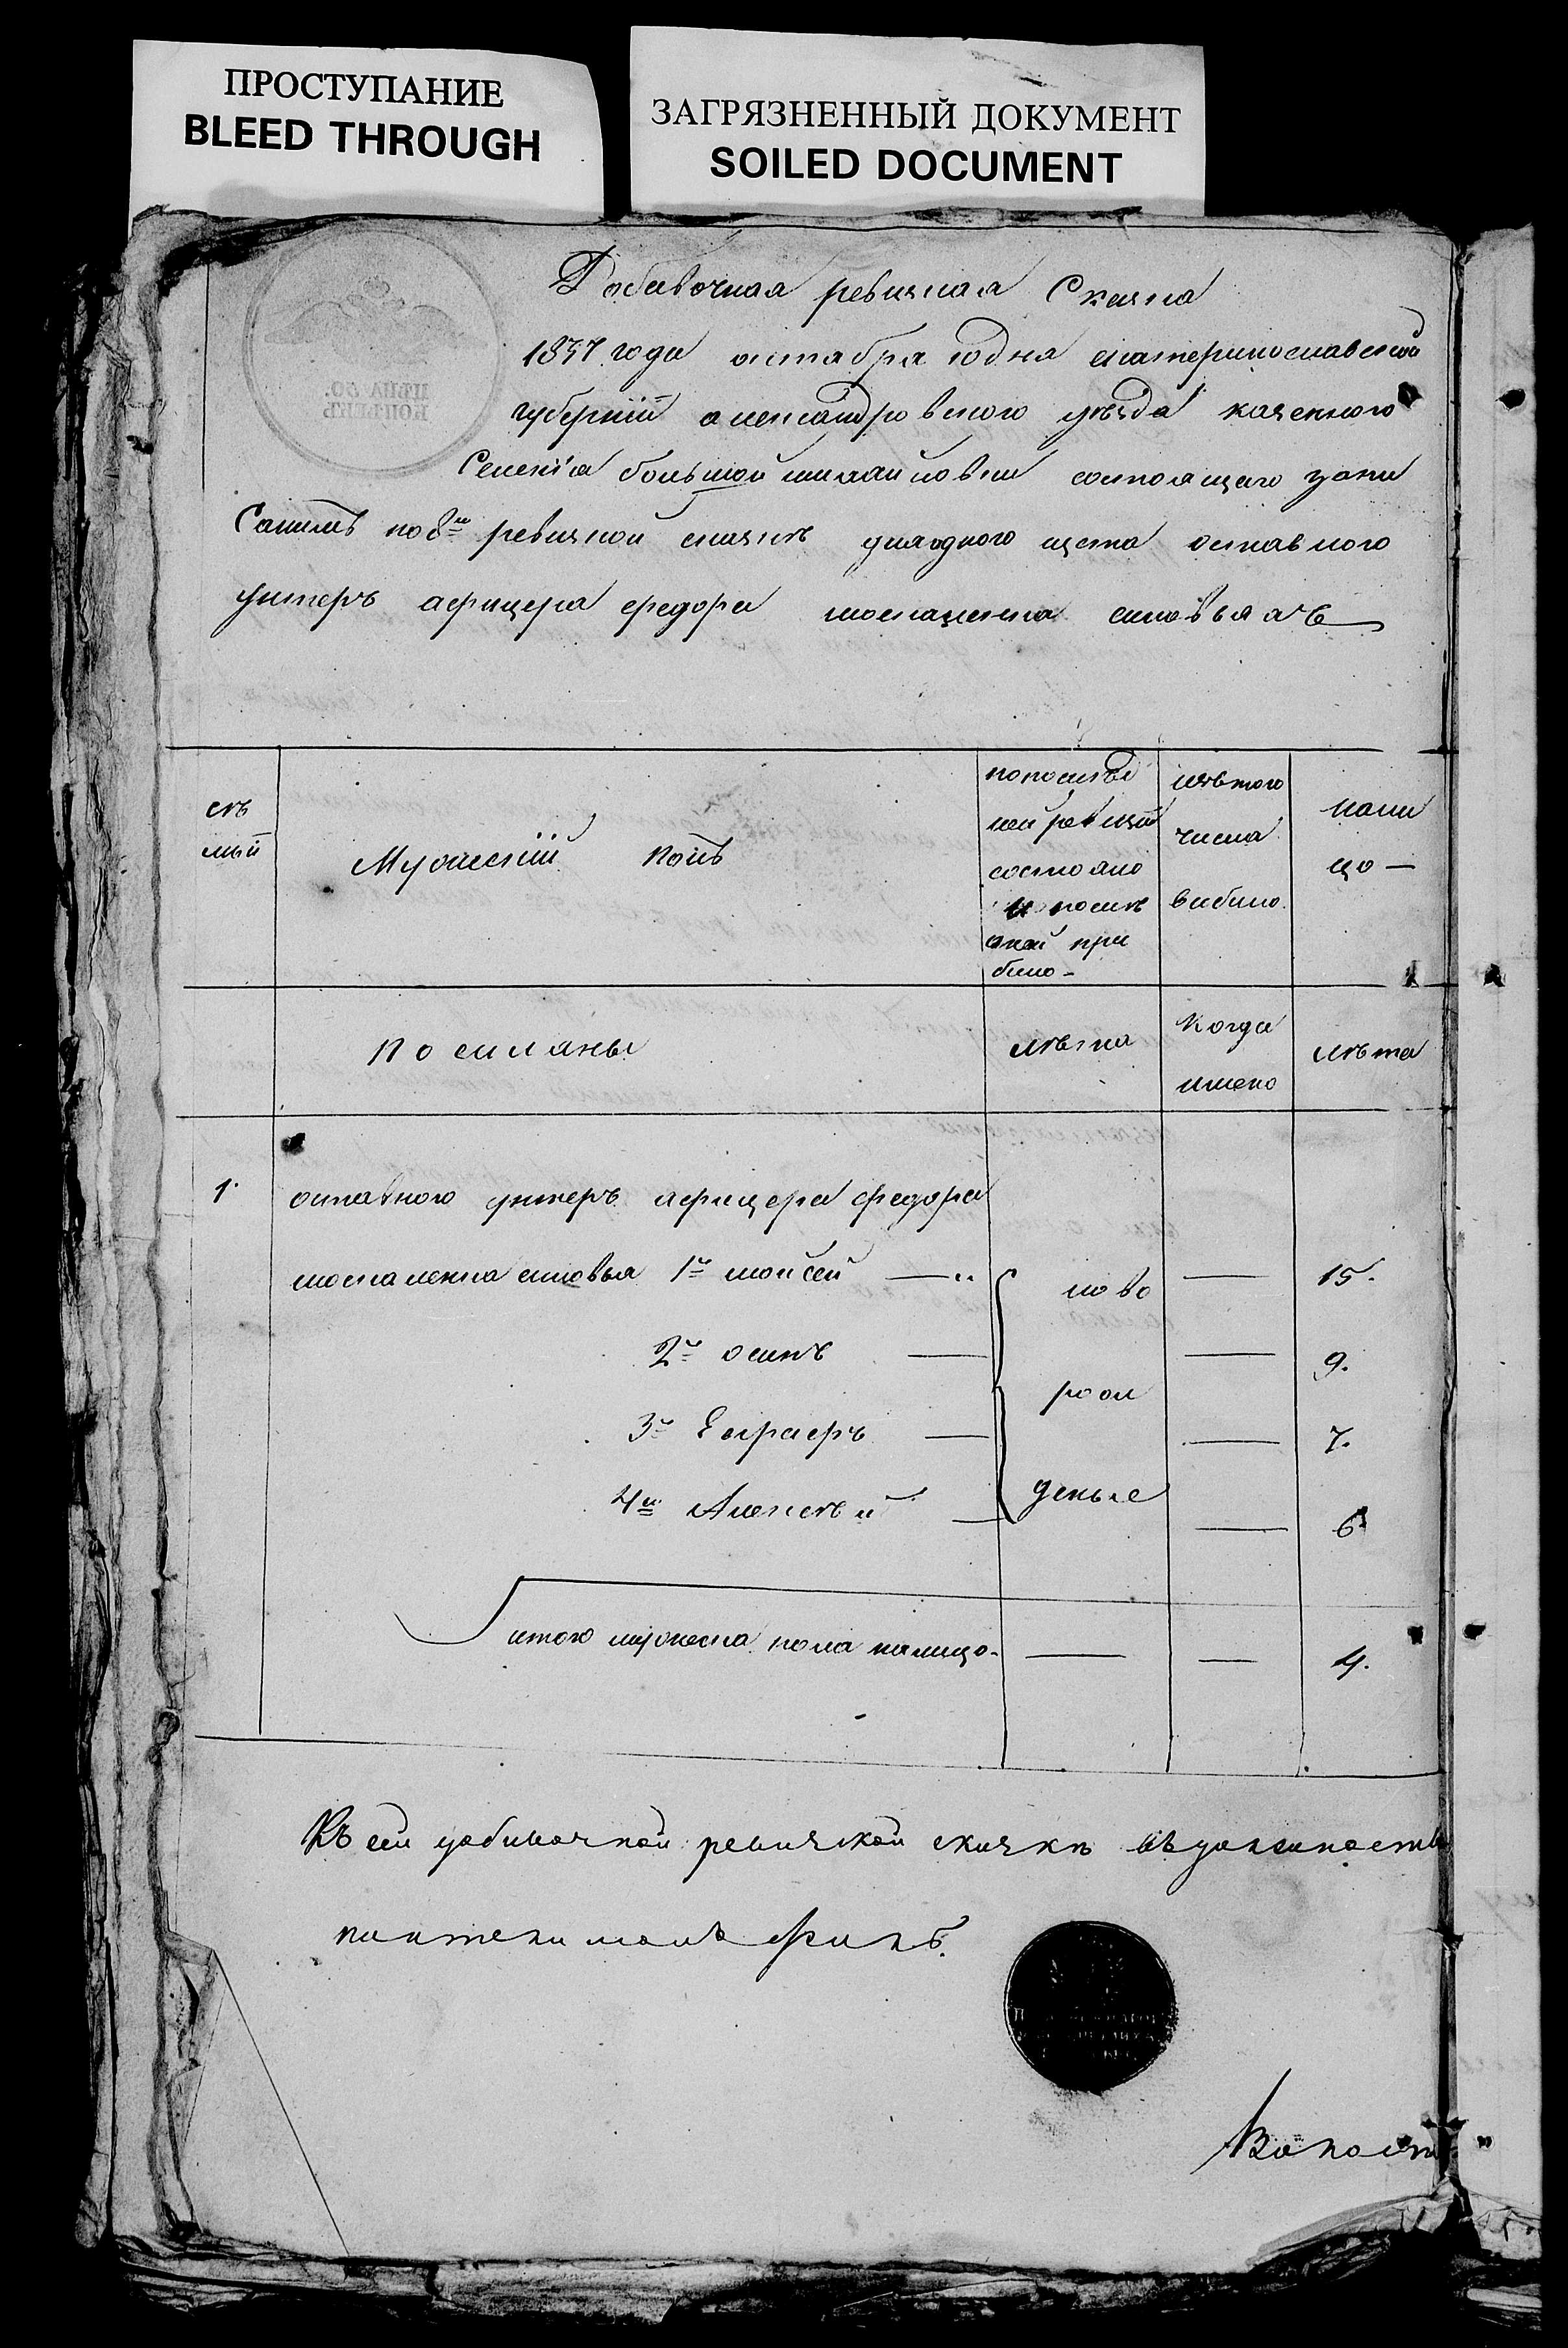 ПРОСТУПАНИЕ
BLEED THROUGH
ЗАГРЯЗНЕННЫЙ ДОКУМЕНТ
SOILED DOCUMENT
ЦѢНА 50.
КОПѢЕКЪ
Добавочная ревизкая Скаска
1837 года октабра дня екатеринославской
губернїи александровского уѣзда казенного
Селенїа большой михайловки состоящего
по 8й ревизкой сказкѣ оставного
унтеръ афицера федора москаленка сыновьяхъ
семьи
Мужескїй полъ
по послѣд
ней ревизїи
состояло
и послѣ
оной при
было
изътого
числа
выбыло.
нали
цо —
Поселяны
лѣта
когда
имено
лѣта
1. оставного унтеръ афицера федора
москаленка сыновья 1й мойсей — ново — 15.
2й осипъ — — 9.
рож
3й — — 7.
4й Алексѣй — деные — 6
итого мужеска пола налицо — — — 4.
Къ сей добавочной ревизкой сказкѣ